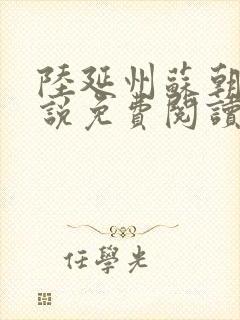 陸延州蘇朝
說免費閱讀
任學光